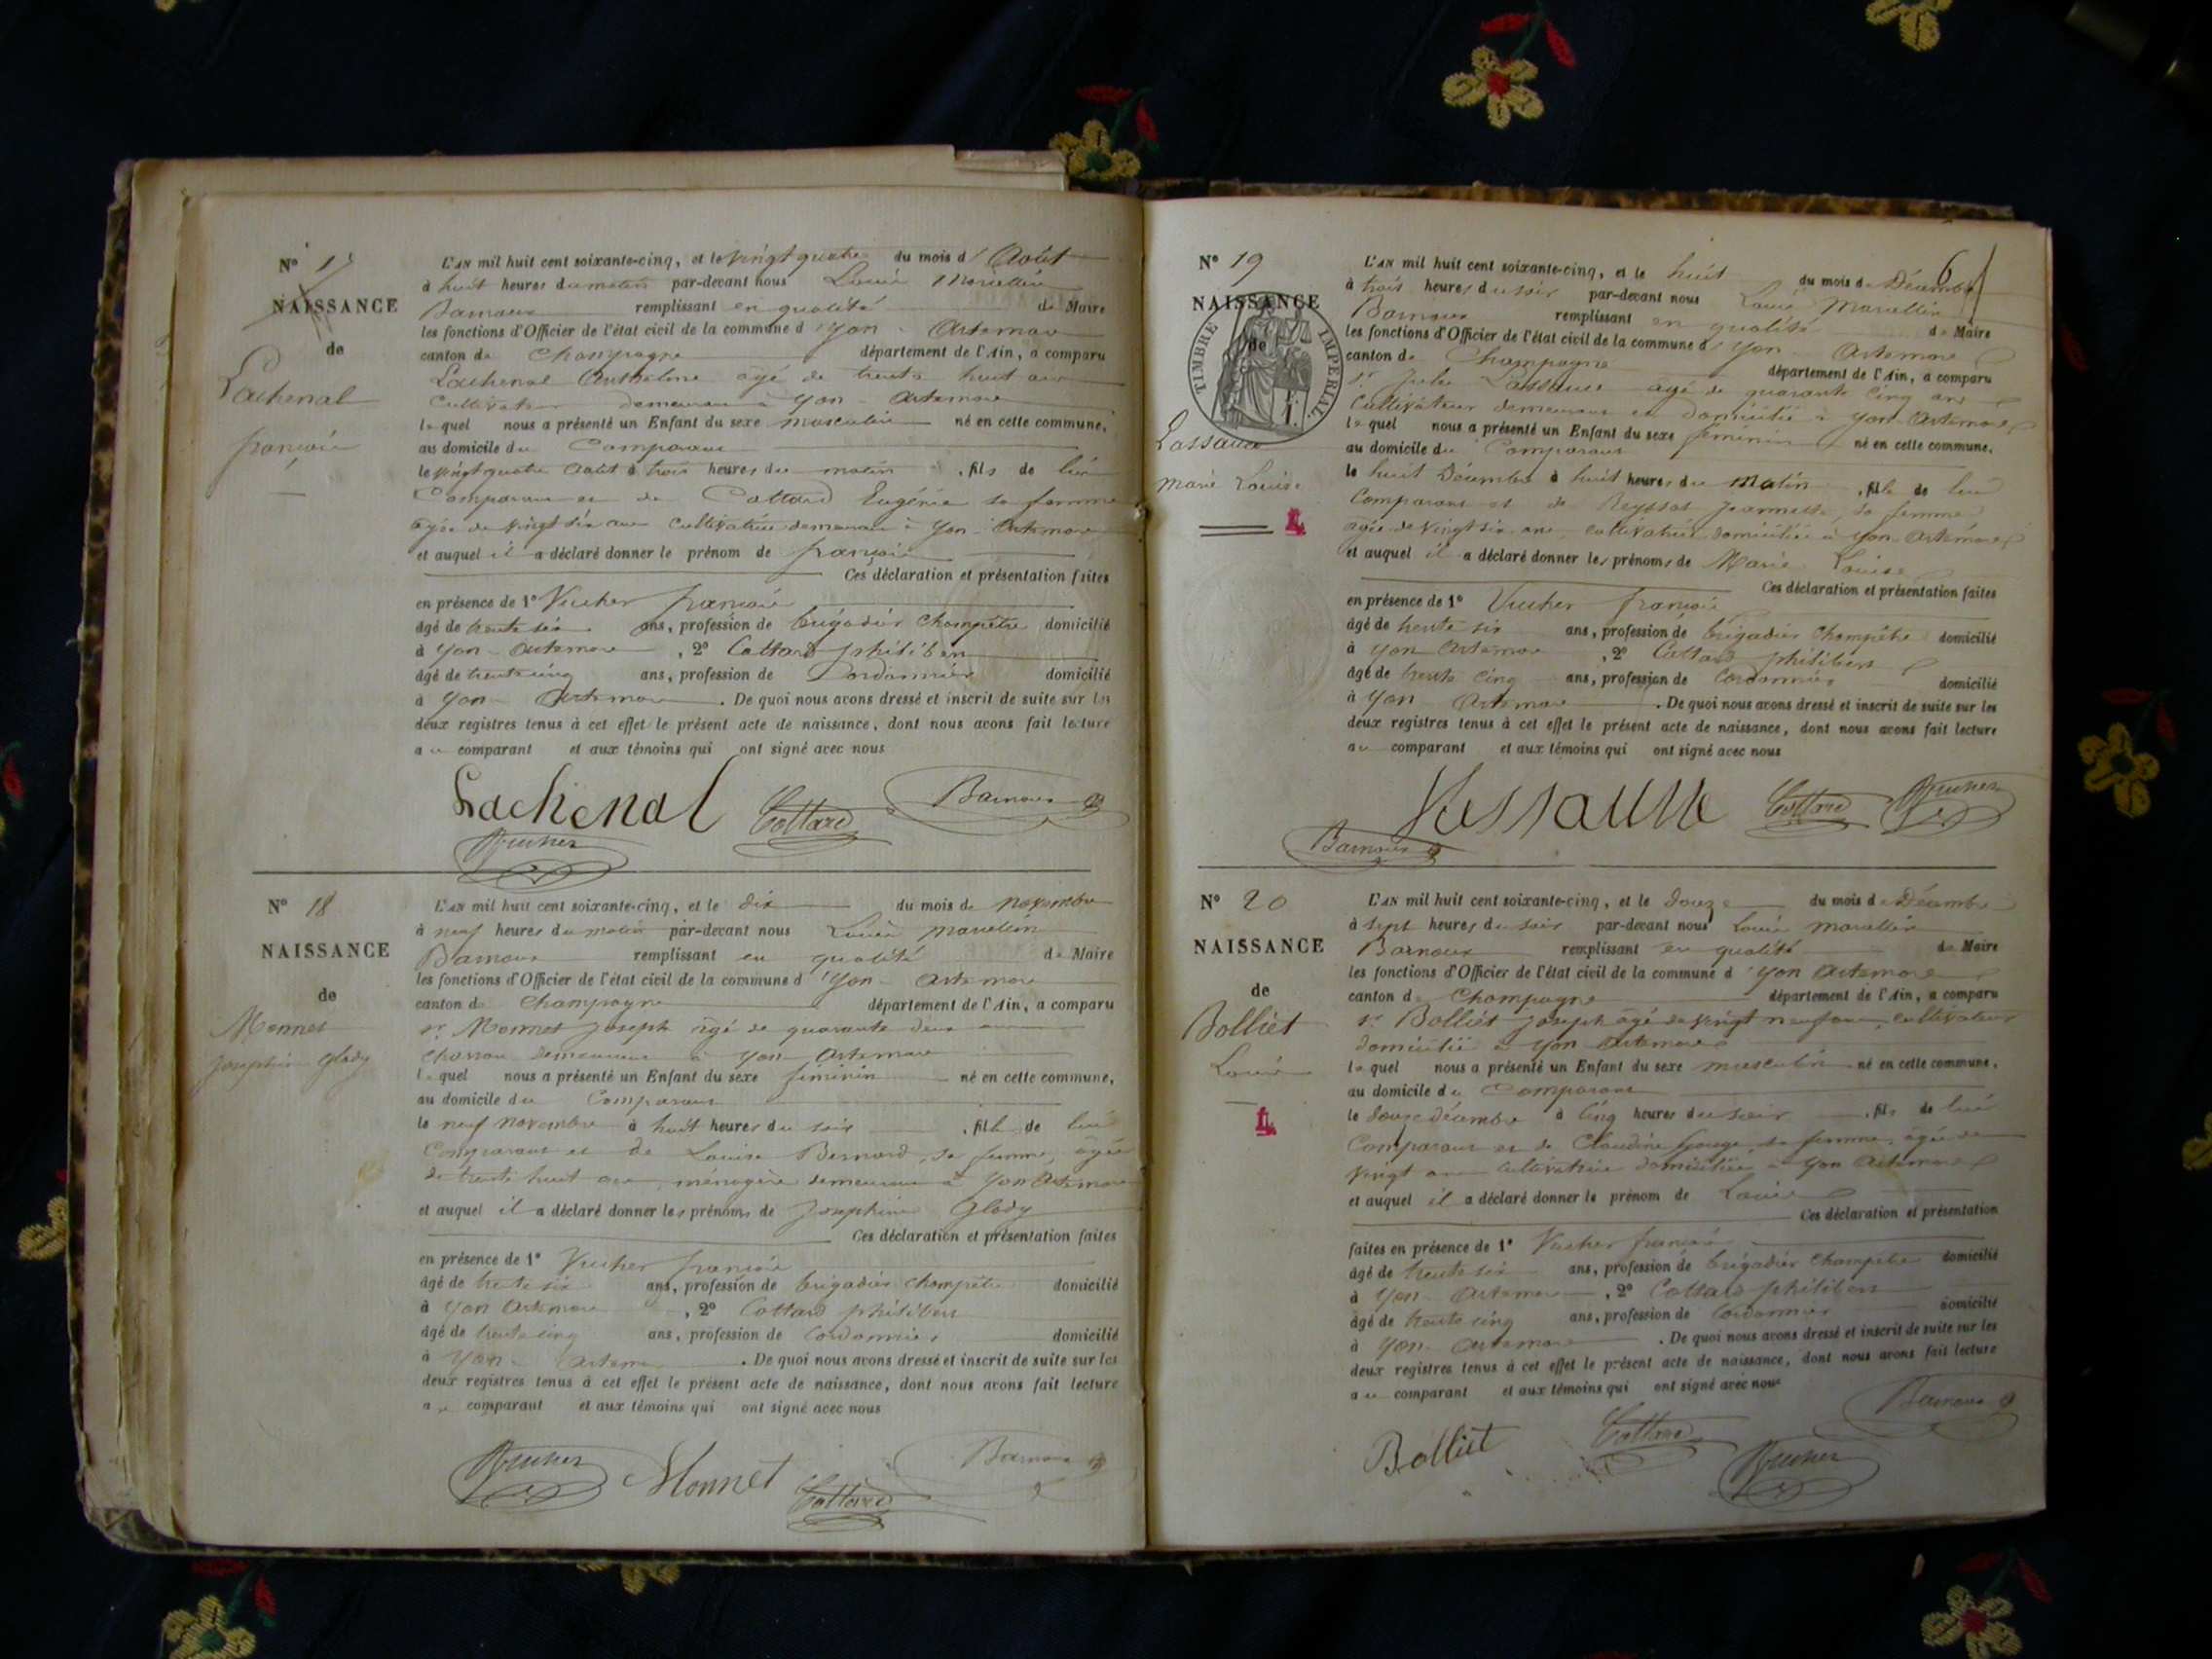 N° 17
NAISSANCE
de
Lachenal
françois
L'AN mil huit cent soixante-cinq, et le vingt quatre du mois d'Août
à huit heures du matin par-devant nous Louis Marcellin
Barnoux remplissant en qualité de Maire
les fonctions d'Officier de l'état civil de la commune d'yon - Artemare
canton de Champagne département de l'Ain, a comparu
Lachenal Anthelme âgé de trente huit ans
Cultivateur demeurant à yon - Artemare
lequel nous a présenté un Enfant du sexe masculin né en cette commune,
au domicile du Comparant
le vingt quatre Août à trois heures du matin, fils de lui
Comparant et de Cottard Eugénie sa femme
âgée de vingt six ans Cultivatrice demeurant à yon - Artemare
et auquel il a déclaré donner le prénom de françois
Ces déclaration et présentation faites
en présence de 1° Vucher françois
âgé de trente six ans, profession de brigadier Champêtre domicilié
à yon - Artemare, 2° Cottard philibert
âgé de trente cinq ans, profession de Cordonnier domicilié
à yon - Artemare. De quoi nous avons dressé et inscrit de suite sur les
deux registres tenus à cet effet le présent acte de naissance, dont nous avons fait lecture
au comparant et aux témoins qui ont signé avec nous
Lachenal Cottard Barnoux
Vucher
N° 18
NAISSANCE
de
Monnet
Joséphine Glady
L'AN mil huit cent soixante-cinq, et le dix du mois de novembre
à neuf heures du matin par-devant nous Louis marcellin
Barnoux remplissant en qualité de Maire
les fonctions d'Officier de l'état civil de la commune d'yon - Artemare
canton de Champagne département de l'Ain, a comparu
sr Monnet Joseph âgé de quarante deux ans
Charron demeurant à yon - Artemare
lequel nous a présenté un Enfant du sexe féminin né en cette commune,
au domicile du Comparant
le neuf novembre à huit heures du soir, fille de lui
Comparant et de Louise Bernard, sa femme, âgée
de trente huit ans, ménagère demeurant à yon Artemare
et auquel il a déclaré donner les prénoms de Joséphine Glady
Ces déclaration et présentation faites
en présence de 1° Vucher françois
âgé de trente six ans, profession de brigadier Champêtre domicilié
à yon Artemare, 2° Cottard philibert
âgé de trente cinq ans, profession de Cordonnier domicilié
à yon - Artemare. De quoi nous avons dressé et inscrit de suite sur les
deux registres tenus à cet effet le présent acte de naissance, dont nous avons fait lecture
au comparant et aux témoins qui ont signé avec nous
Vucher Monnet Cottard Barnoux
6
N° 19
NAISSANCE
de
TIMBRE IMPERIAL
Lassausse
marie Louise
L'AN mil huit cent soixante-cinq, et le huit du mois de Décembre
à trois heures du soir par-devant nous Louis Marcellin
Barnoux remplissant en qualité de Maire
les fonctions d'Officier de l'état civil de la commune d'yon - Artemare
canton de Champagne département de l'Ain, a comparu
sr Lassausse âgé de quarante cinq ans
Cultivateur demeurant et domicilié à yon - Artemare
lequel nous a présenté un Enfant du sexe féminin né en cette commune,
au domicile du Comparant
le huit Décembre à huit heures du Matin, fille de lui
Comparant et de Reyssat jeannette, sa femme
âgée de vingt six ans, cultivatrice domiciliée à yon - Artemare
et auquel il a déclaré donner les prénoms de Marie Louise
Ces déclaration et présentation faites
en présence de 1° Vucher françois
âgé de trente six ans, profession de brigadier Champêtre domicilié
à yon Artemare, 2° Cottard philibert
âgé de trente cinq ans, profession de Cordonnier domicilié
à yon Artemare. De quoi nous avons dressé et inscrit de suite sur les
deux registres tenus à cet effet le présent acte de naissance, dont nous avons fait lecture
au comparant et aux témoins qui ont signé avec nous
Lassausse Cottard Vucher
Barnoux
N° 20
NAISSANCE
de
Bolliet
Louis
L'AN mil huit cent soixante-cinq, et le douze du mois de Décembre
à sept heures du soir par-devant nous Louis Marcellin
Barnoux remplissant en qualité de Maire
les fonctions d'Officier de l'état civil de la commune d'yon Artemare
canton de Champagne département de l'Ain, a comparu
sr Bolliet Joseph âgé de vingt neuf ans, cultivateur
domicilié à yon Artemare
lequel nous a présenté un Enfant du sexe masculin né en cette commune,
au domicile du Comparant
le douze décembre à cinq heures du soir, fils de lui
Comparant et de Claudine sa femme, âgée de
vingt ans cultivatrice domiciliée à yon Artemare
et auquel il a déclaré donner le prénom de Louis
Ces déclaration et présentation
faites en présence de 1° Vucher françois
âgé de trente six ans, profession de brigadier Champêtre domicilié
à yon - Artemare, 2° Cottard philibert
âgé de trente cinq ans, profession de Cordonnier domicilié
à yon - Artemare. De quoi nous avons dressé et inscrit de suite sur les
deux registres tenus à cet effet le présent acte de naissance, dont nous avons fait lecture
au comparant et aux témoins qui ont signé avec nous
Bolliet Cottard Vucher Barnoux